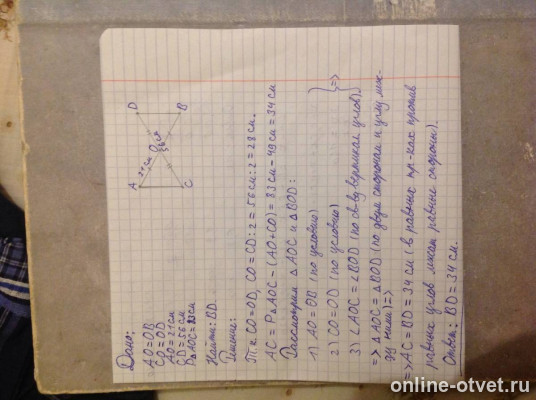 Дано:
AO=OB
CO=OD
AO=21см
CD=56см
P△AOC=83см
Найти: BD.
Решение:
Т.к. CO=OD, CO=CD:2=56см:2=28см.
AC=P△AOC-(AO+CO)=83см-49см=34см
Рассмотрим △AOC и △BOD:
1) AO=OB (по условию)
2) CO=OD (по условию)
3) ∠AOC=∠BOD (по св-ву вертикал. углов)
} =>
=> △AOC=△BOD (по двум сторонам и углу меж-
ду ними) =>
=> AC=BD=34см (в равных тр-ках против
равных углов лежат равные стороны).
Ответ: BD=34см.
A
D
B
C
O
21см
56см
online-otvet.ru